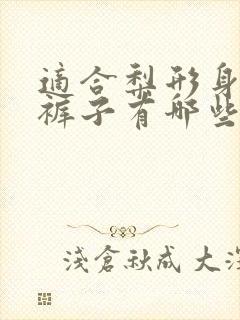 適合梨形身
褲子有哪些
淺倉秋成 大深